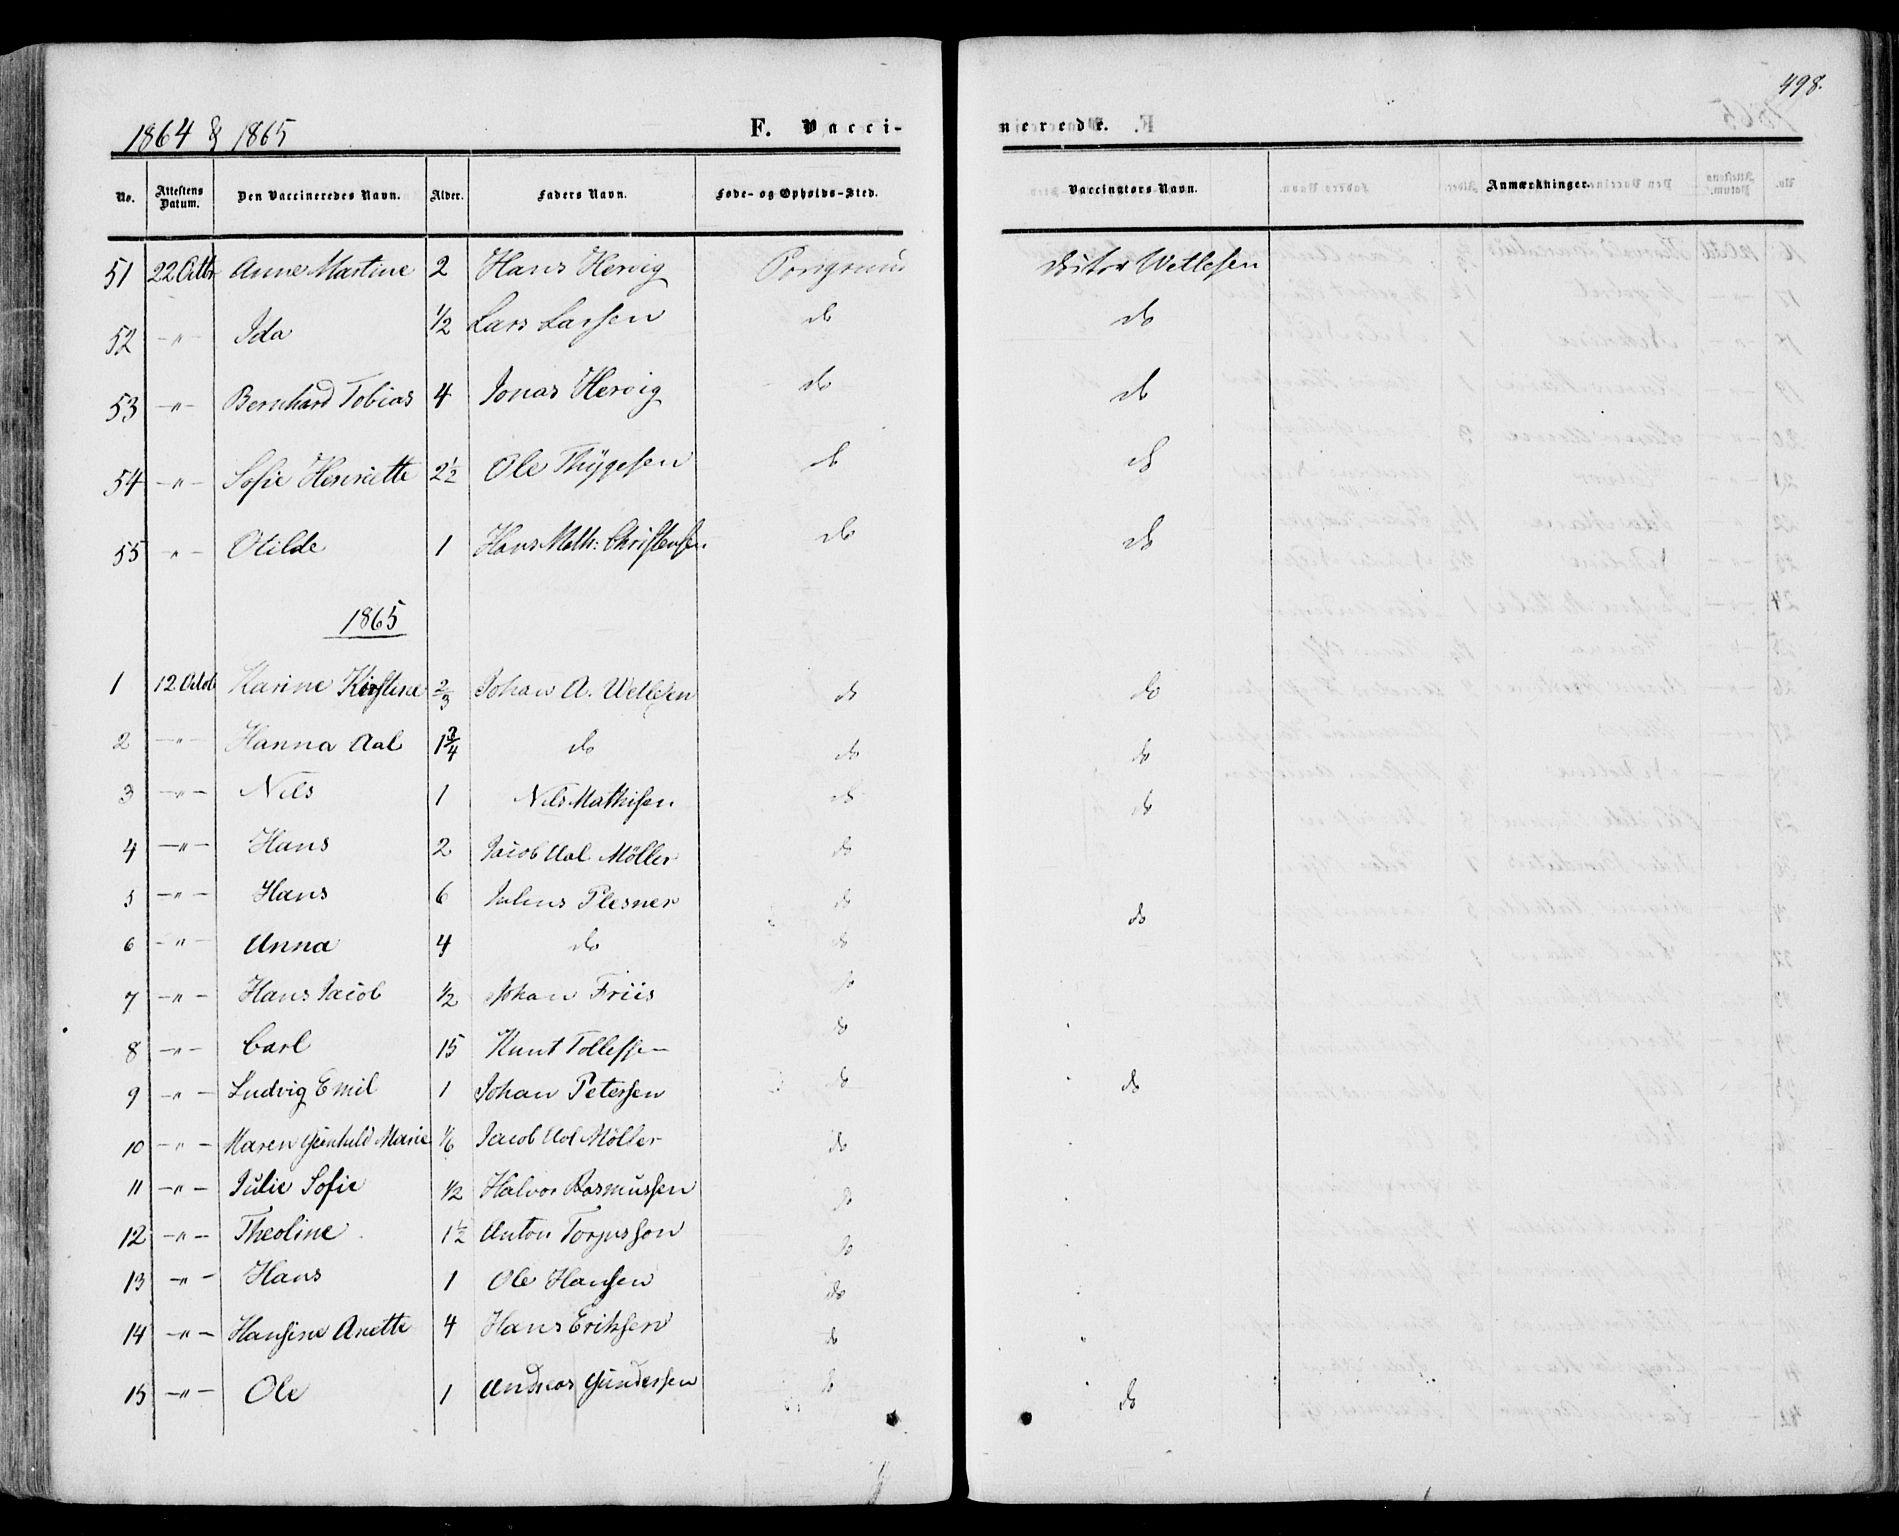 498.
1864 & 1865 F. Vacci- nerede.
No. Attestens Datum. Den Vaccineredes Navn. Alder. Faders Navn. Føde- og Opholds-Sted. Vaccinators Navn. Anmærkninger.
51 22 Octbr Anne Martine 2 Hans Hervig Porsgrund Doktor Wetlesen
52 -"- Ida 1/2 Lars Larsen do do
53 -"- Bernhard Tobias 4 Jonas Hervig do do
54 -"- Sofie Henriette 2 1/2 Ole Thygesen do do
55 -"- Otilde 1 Hans Math: Christensen do do
1865
1 12 Octob Karine Kirstine 2/3 Johan A. Wetlesen do do
2 -"- Hanna Aal 1 3/4 do do do
3 -"- Nils 1 Nils Mathisen do do
4 -"- Hans 2 Jacob Aal Møller do
5 -"- Hans 6 Julius Plesner do do
6 -"- Anna 4 do do
7 -"- Hans Jacob 1/2 Johan Friis do
8 -"- Carl 15 Knut Tollefsen do
9 -"- Ludvig Emil 1 Johan Petersen do do
10 -"- Maren Gunhild Marie 1/6 Jacob Aal Møller do
11 -"- Julie Sofie 1/2 Halvor Rasmussen do
12 -"- Theoline 1 1/2 Anton Torjussen do
13 -"- Hans 1 Ole Hansen do
14 -"- Hansine Anette 4 Hans Eriksen do
15 -"- Ole 1 Andreas Gundersen do do